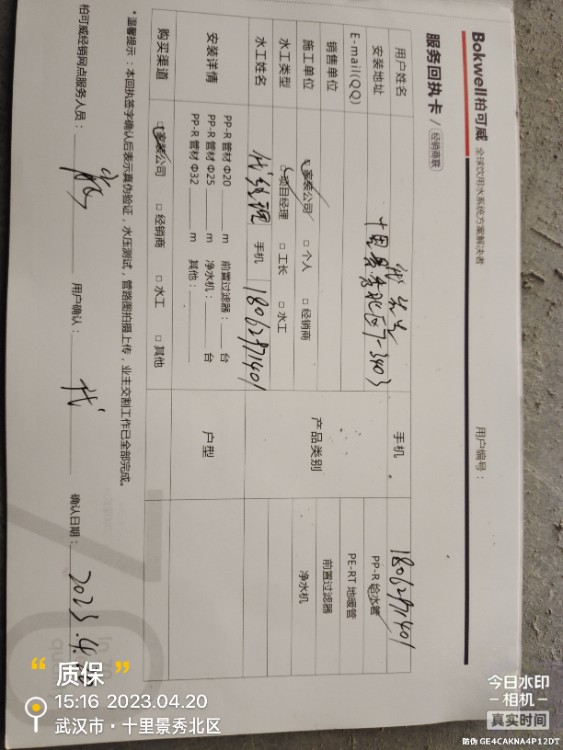 Bokwell柏可威 全球饮用水系统方案解决者
服务回执卡 / 经销商联 用户编号：
用户姓名 手机 18062971401
安装地址 十里景秀北区7-3403 PP-R 给水管
E-mail(QQ) PE-RT 地暖管
销售单位 产品类别 前置过滤器
施工单位 家装公司 □ 个人 □ 经销商 净水机
水工类型 项目经理 □ 工长 □ 水工
水工姓名 代经理 手机 18062971401
安装详情 PP-R 管材 Φ20 m 前置过滤器： 台 户型
PP-R 管材 Φ25 m 净水机： 台
PP-R 管材 Φ32 m 其他：
购买渠道 家装公司 □ 经销商 □ 水工 □ 其他
*温馨提示：本回执签字确认后表示真伪验证，水压测试，管路图拍摄上传，业主交割工作已全部完成。
柏可威经销网点服务人员： 用户确认： 代 确认日期： 2023.4.
“ 质保 ”
15:16 2023.04.20
武汉市·十里景秀北区
今日水印
相机
真实时间
防伪 GE4CAKNA4P12DT